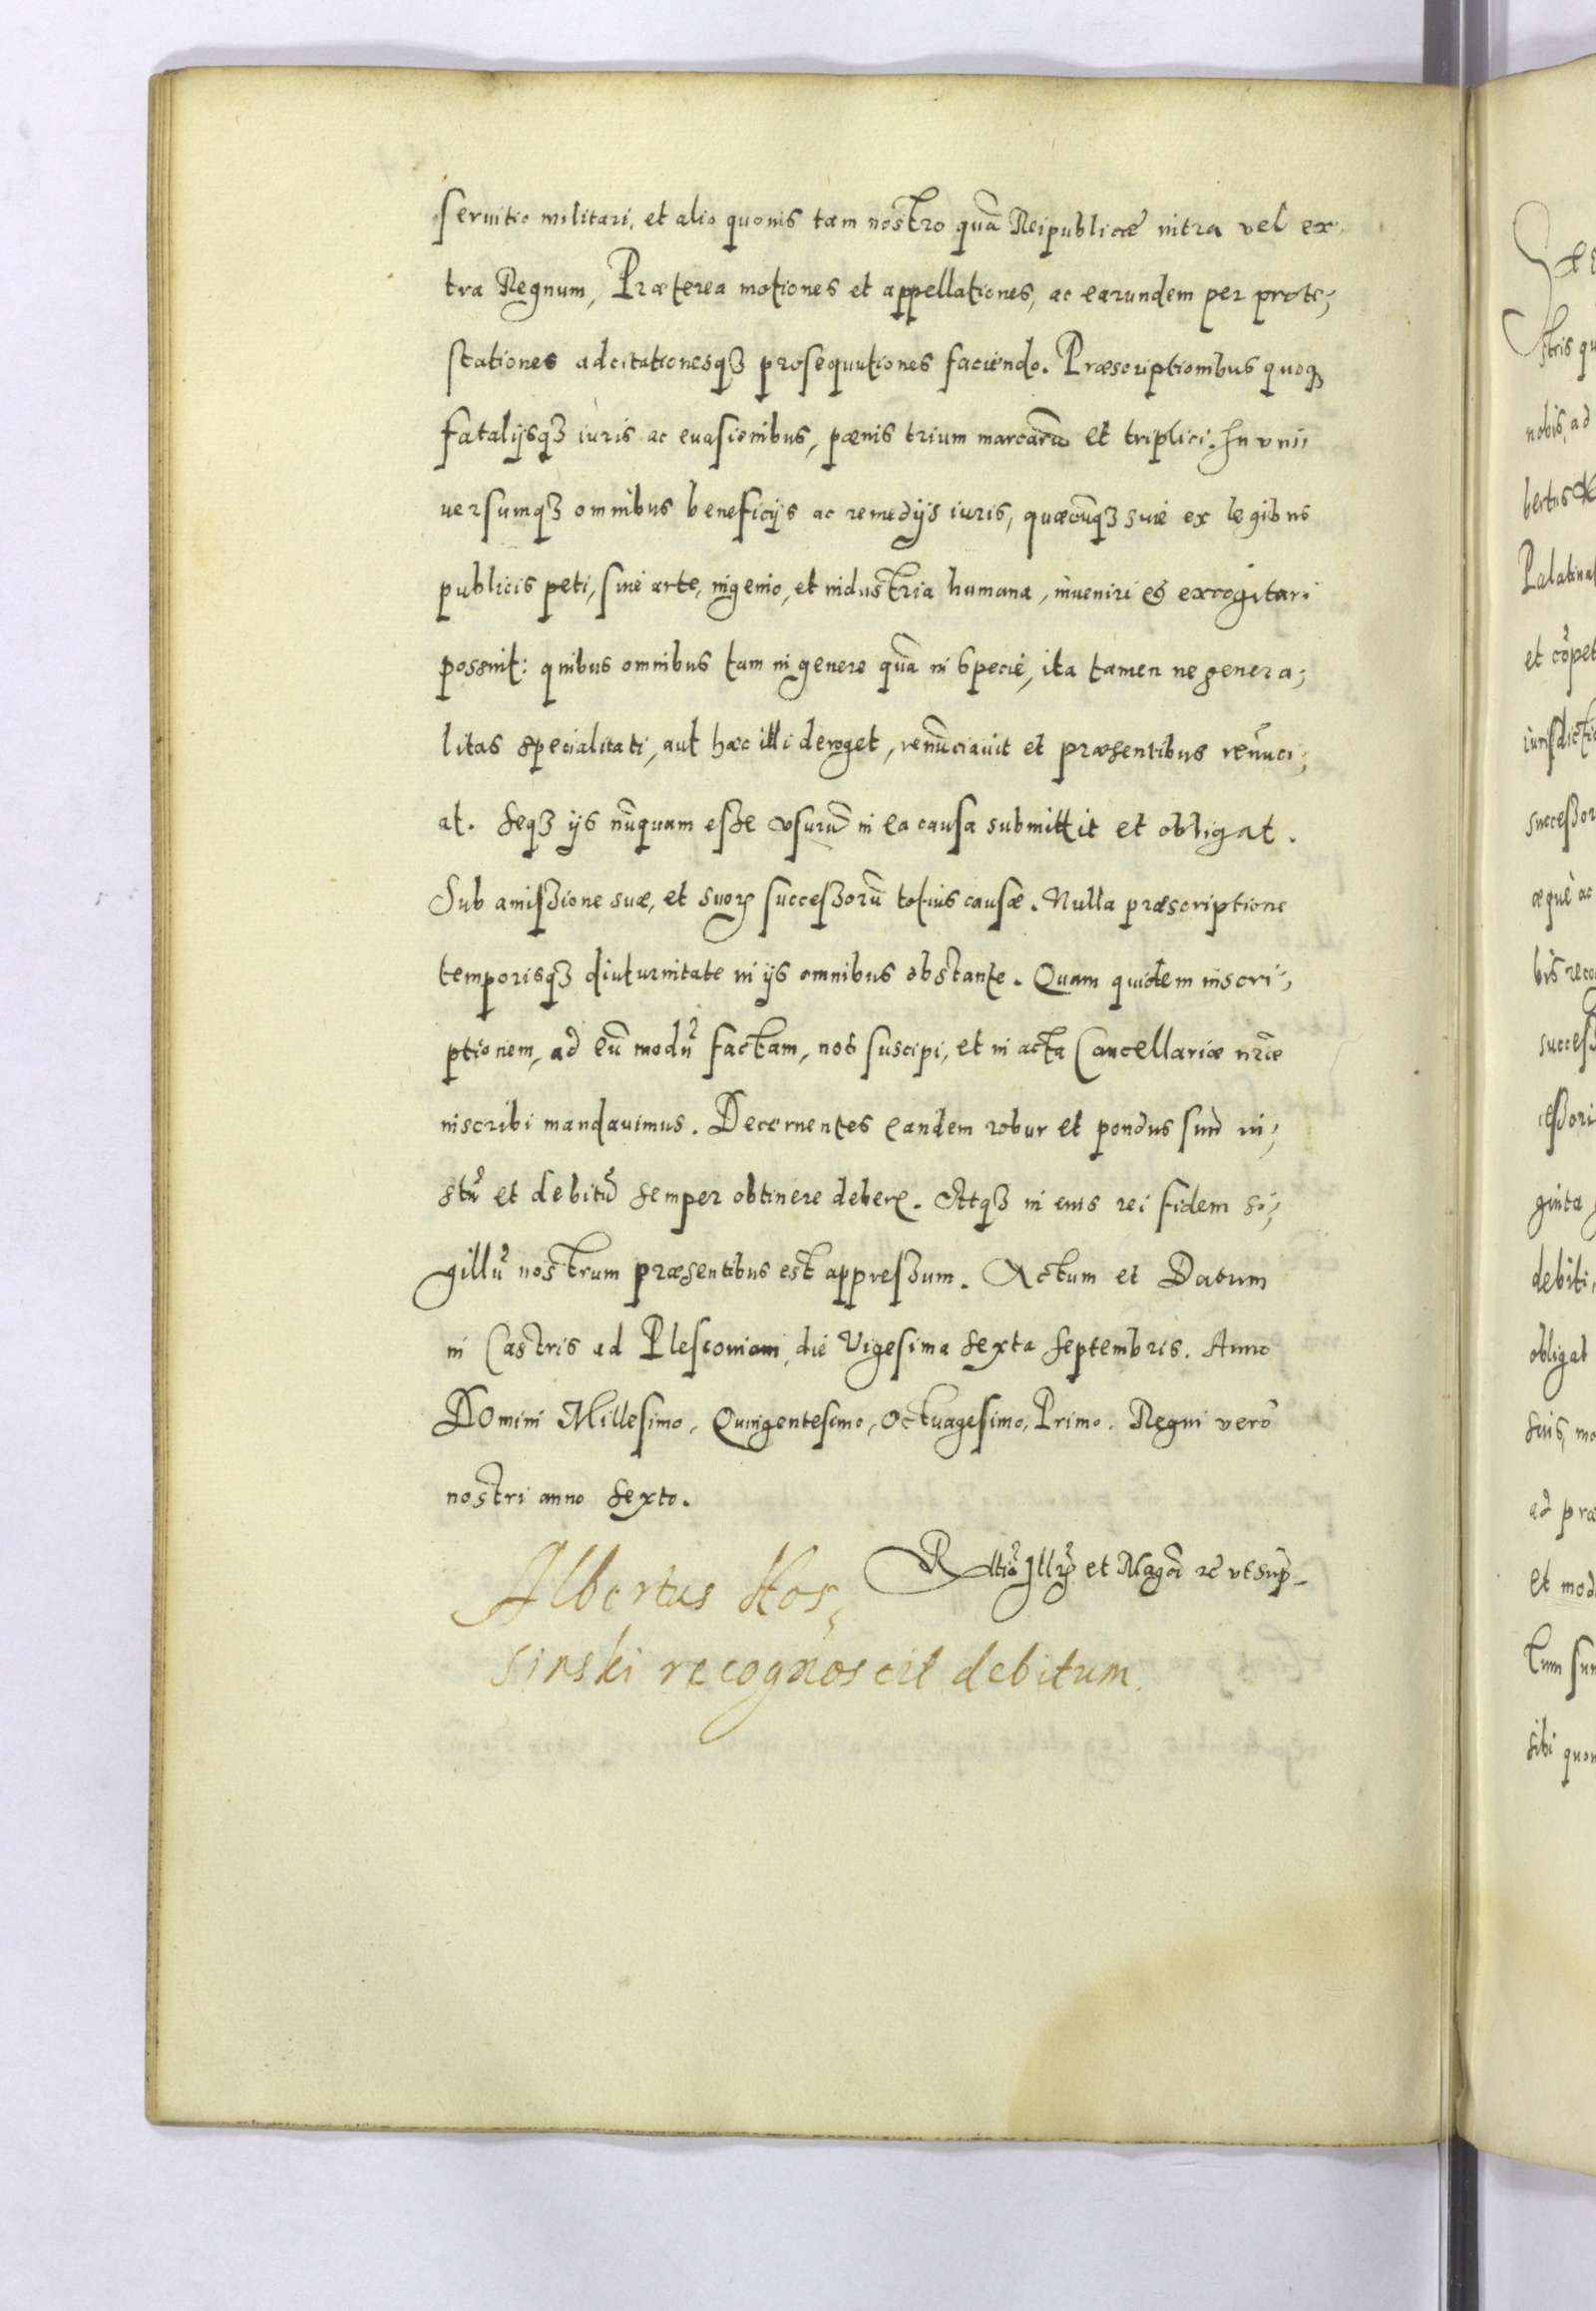 seruitio militari, et alio quouis tam nostro quã Reipublicæ intra vel ex,
tra Regnum, Præterea motiones et appellationes, ac earundem per prote;
stationes adcitationesqꝫ prosequutiones faciendo. Præscriptionibus quoqꝫ
fatalijsqꝫ iuris ac euasionibus, pœnis trium marcarũ et triplici. In vni;
uersumqꝫ omnibus beneficijs ac remedijs iuris, quæcũqꝫ siue ex legibus
publicis peti, siue arte, ingenio, et industria humana, inueniri et excogitari
possint: quibus omnibus tam in genere quã in specie, ita tamen ne genera;
litas specialitati, aut hæc illi deroget, renũciauit et præsentibus renũci;
at. Seqꝫ ijs nũquam esse vsurũ in ea causa submittit et obligat.
Sub amissione suæ, et suorꝝ successorũ totius causæ. Nulla præscriptione
temporisqꝫ diuturnitate in ijs omnibus obstante. Quam quidem inscri;
ptionem, ad eũ modũ factam, nos suscipi, et in acta Cancellariæ nr̃æ
inscribi mandauimus. Decernentes eandem robur et pondus suũ iu;
stũ et debitũ semper obtinere debere. Atqꝫ in eius rei fidem si;
gillũ nostrum præsentibus est appressum. Actum et Datum
in Castris ad Plescouiam, die Vigesima sexta Septembris. Anno
Domini Millesimo, Quingentesimo, Octuagesimo, Primo. Regni vero
nostri anno Sexto.
Rltiõ Illr̃ et Magcĩ rc̃ vt sup̃
Albertus Kos,
sinski recognoscit debitum.